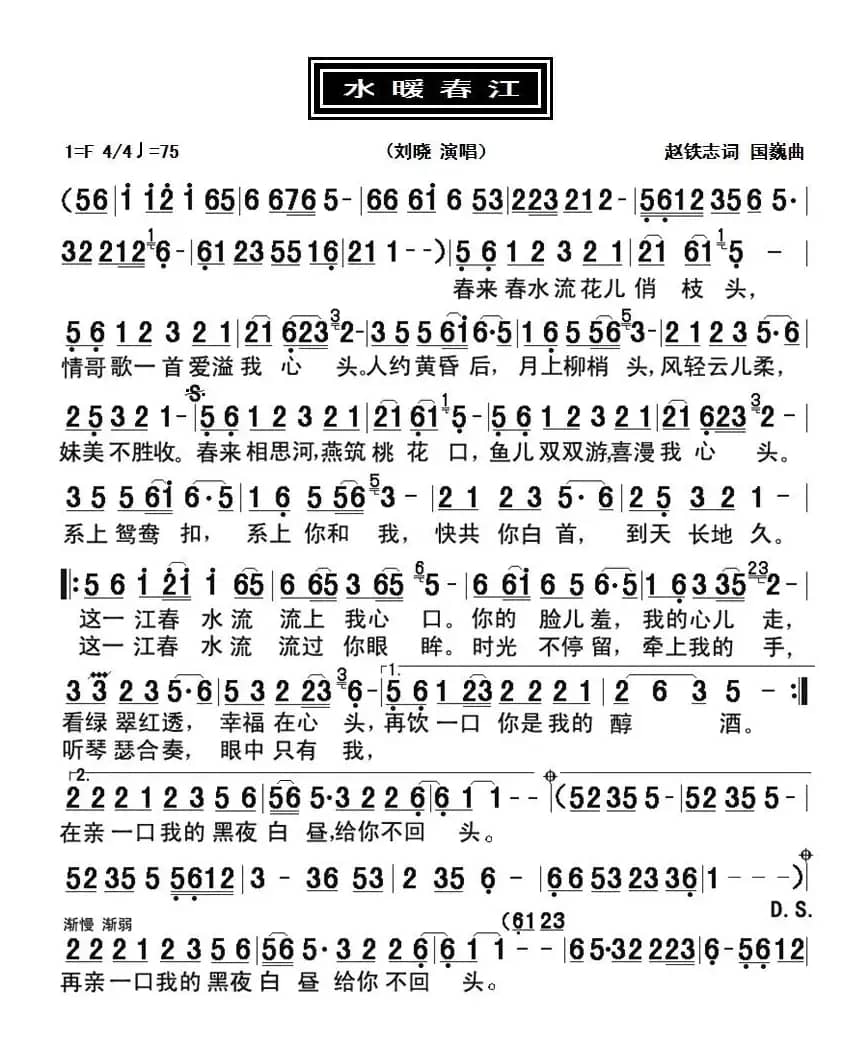 水暖春江
1=F 4/4♩=75 （刘晓 演唱） 赵铁志词 国巍曲
(56|i i2 i 65|6 676 5-|66 6i 6 53|223 212-|5612 356 5·|
32 212 1 6-|61 23 55 16|21 1--)|5 6 1 2 3 2 1|21 61 1 5 -|
春来 春水 流花儿 俏 枝 头，
5 6 1 2 3 2 1|21 623 3 2-|3 5 5 6i 6·5|1 6 5 56 5 3-|2 1 2 3 5·6|
情哥歌一首爱溢我 心 头。人约黄昏 后，月上柳梢 头，风轻云儿柔，
2 5 3 2 1-|5 6 1 2 3 2 1|21 61 1 5-|5 6 1 2 3 2 1|21 623 3 2-|
妹美 不胜收。春来 相思河，燕筑 桃 花 口，鱼儿 双双游，喜漫我 心 头。
3 5 5 6i 6·5|1 6 5 56 5 3-|2 1 2 3 5·6|2 5 3 2 1-|
系上 鸳鸯 扣， 系上 你和 我， 快共 你白 首， 到天 长地 久。
‖:5 6 i 2i i 65|6 65 3 65 6 5-|6 6i 6 5 6·5|1 6 3 35 23 2-|
这一 江春 水流 流上 我心 口。你的 脸儿 羞，我的心儿 走，
这一 江春 水流 流过 你眼 眸。时光 不停 留，牵上我的 手，
3 3 2 3 5·6|5 3 2 23 3 6-|1. 5 6 1 23 2 2 2 1|2 6 3 5 -:‖
看绿 翠红透， 幸福 在心 头，再饮 一口 你是我的 醇 酒。
听琴 瑟合奏， 眼中 只有 我，
2. 2 2 2 1 2 3 5 6|56 5·3 2 2 6|6 1 1--|(52 35 5-|52 35 5-|
在亲 一口我的 黑夜 白 昼，给你不回 头。
52 35 5 5612|3 - 36 53|2 35 6 -|66 53 23 36|1---)|
D.S.
渐慢 渐弱 (61 23
2 2 2 1 2 3 5 6|56 5·3 2 2 6|6 1 1--|65·32 223|6-5612|
再亲 一口我的 黑夜 白 昼 给你 不回 头。